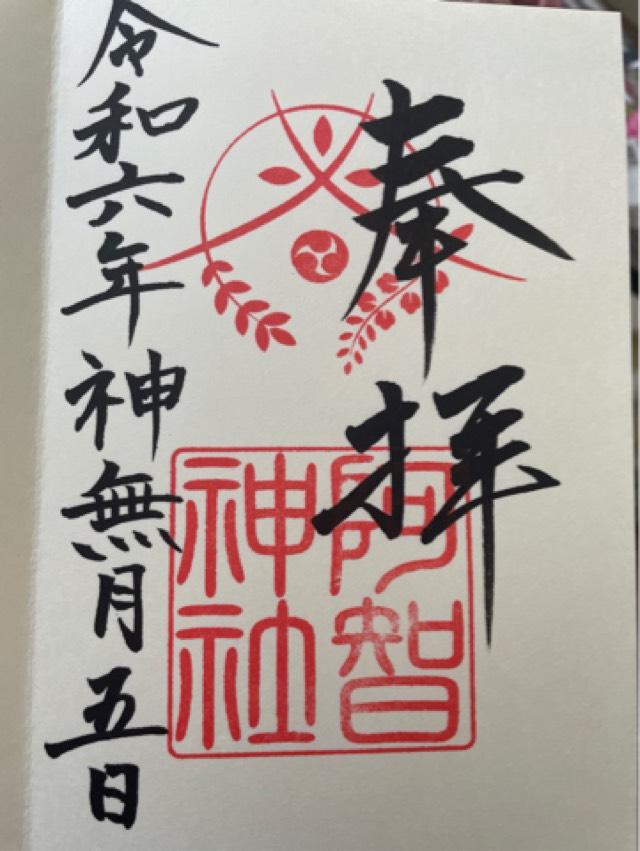 奉拝
阿智
神社
令和六年神無月五日